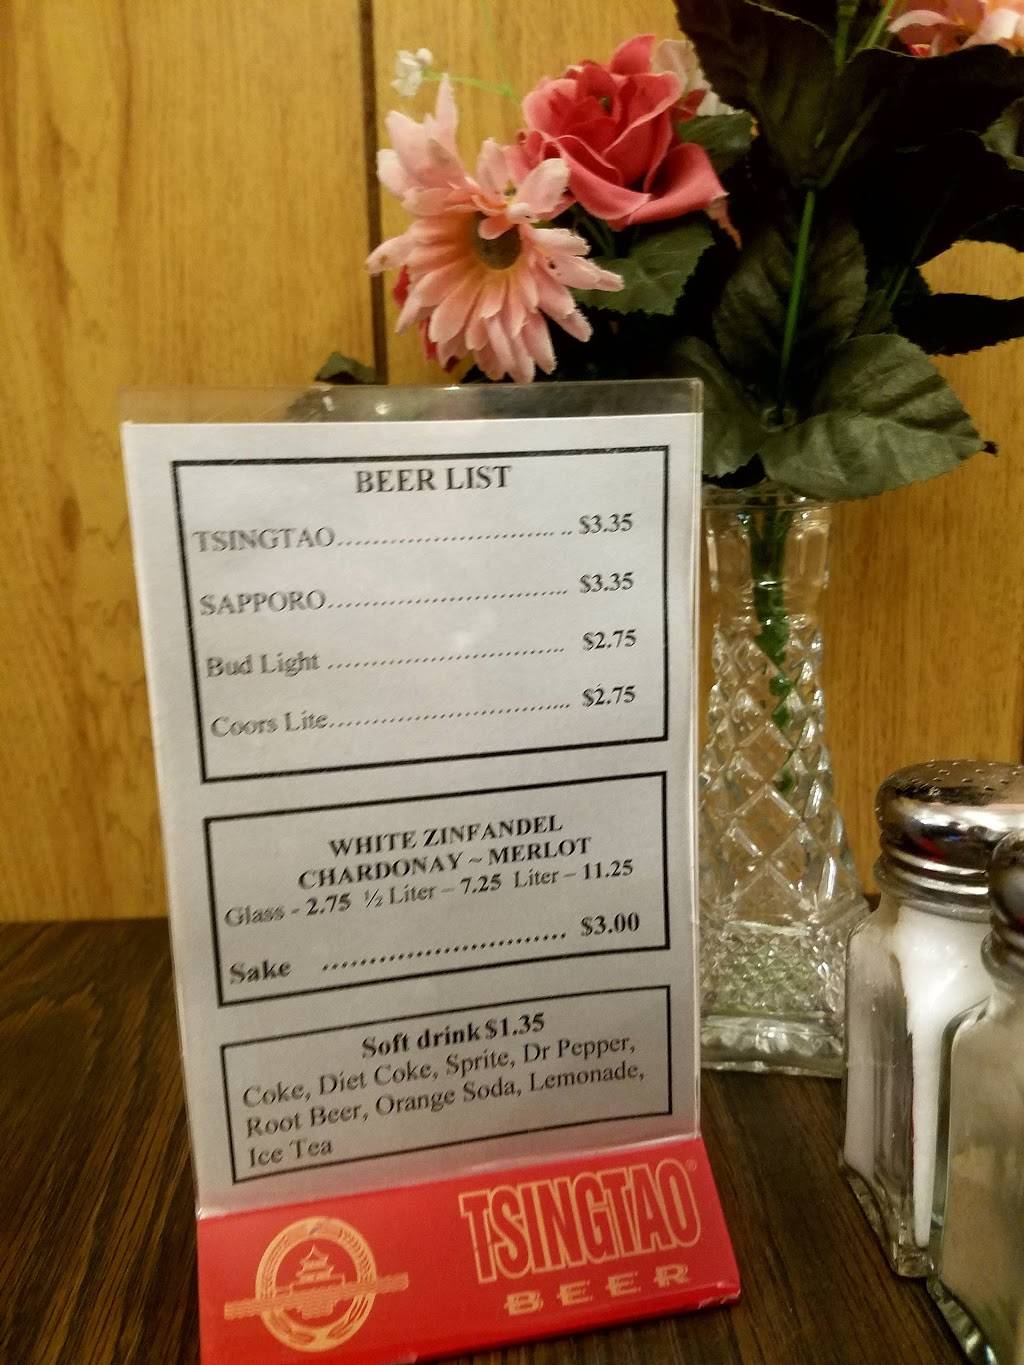 BEER LIST
TSINGTAO............................ .. $3.35
SAPPORO.............................. $3.35
Bud Light ............................. $2.75
Coors Lite.............................. $2.75
WHITE ZINFANDEL
CHARDONAY ~ MERLOT
Glass - 2.75 ½ Liter – 7.25 Liter – 11.25
Sake ............................ $3.00
Soft drink $1.35
Coke, Diet Coke, Sprite, Dr Pepper,
Root Beer, Orange Soda, Lemonade,
Ice Tea
TSINGTAO®
BEER